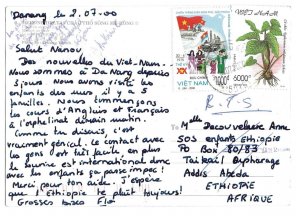 Danang le 2.07.00
Salut Nanou
Des nouvelles du Viet-Nam.
Nous sommes à Da Nang depuis
3 jours Nous avons visité les
enfants des rues, il y a 5
familles. Nous commençons
les cours d'Anglais et Français
à l'orphelinat demain matin.
Comme tu disais, c'est
vraiment génial. Le contact avec
les gens est très facile en plus
le sourire est international donc
avec les enfants ça passe impec!
Merci pour ton aide. J'espère
que l'Ethiopie te plait toujours!
Grosses bisces Flo
VIỆT NAM
6000đ
VIỆT NAM
R.T.S
Melle Decouvelaere Anne
SOS enfants éthiopie
PO Box 80/83
Taikail Orphanage
Addis Abeda
ETHIOPIE
AFRIQUE